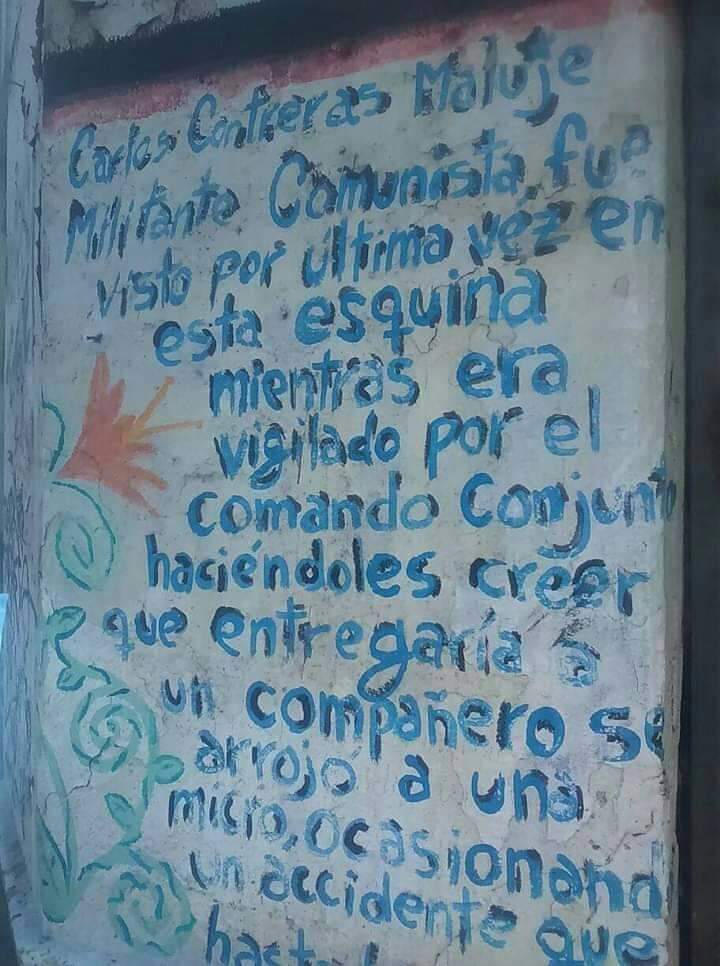 Carlos Contreras Maluje
Militante Comunista, fue
visto por última vez en
esta esquina
mientras era
vigilado por el
comando Conjunto
haciéndoles creer
que entregaría a
un compañero se
arrojó a una
micro, ocasionand
un accidente que